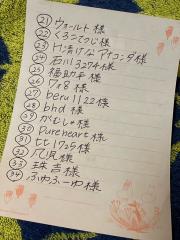 ㉑ウォールト様
㉒くろこてつじ様
㉓片清けなアナコンダ様
㉔石川3274様
㉕福助平様
㉖フォ8様
㉗beru1122様
㉘bhd様
㉙がむしゃ様
㉚Pureheart様
㉛tt1725様
㉜凡児様
㉝珠吉様
㉞ふわふーゆ様